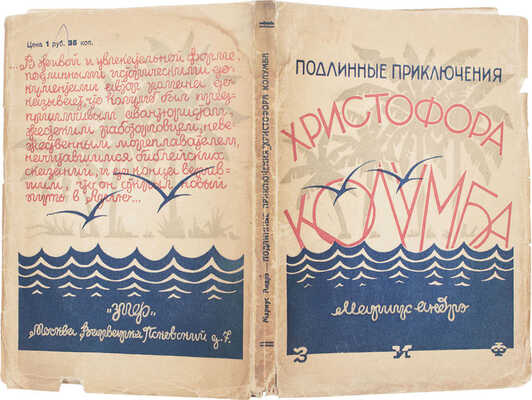 Цена 1 руб. 35 коп.
...В живой и увлекательной форме,
подлинными историческими до-
кументами автор романа до-
казывает, что Колумб был пред-
приимчивым авантюристом,
жадным работорговцем, неве-
жественным мореплавателем,
наслушавшимся библейских
сказаний, и до конца верив-
шим, что он открыл новый
путь в Индию...
"ЗИФ"
Москва Ильинка Псковский д. 7.
Мариус Андрэ — ПОДЛИННЫЕ ПРИКЛЮЧЕНИЯ ХРИСТОФОРА КОЛУМБА
ПОДЛИННЫЕ ПРИКЛЮЧЕНИЯ
ХРИСТОФОРА
КОЛУМБА
Мариус Андрэ
З И Ф